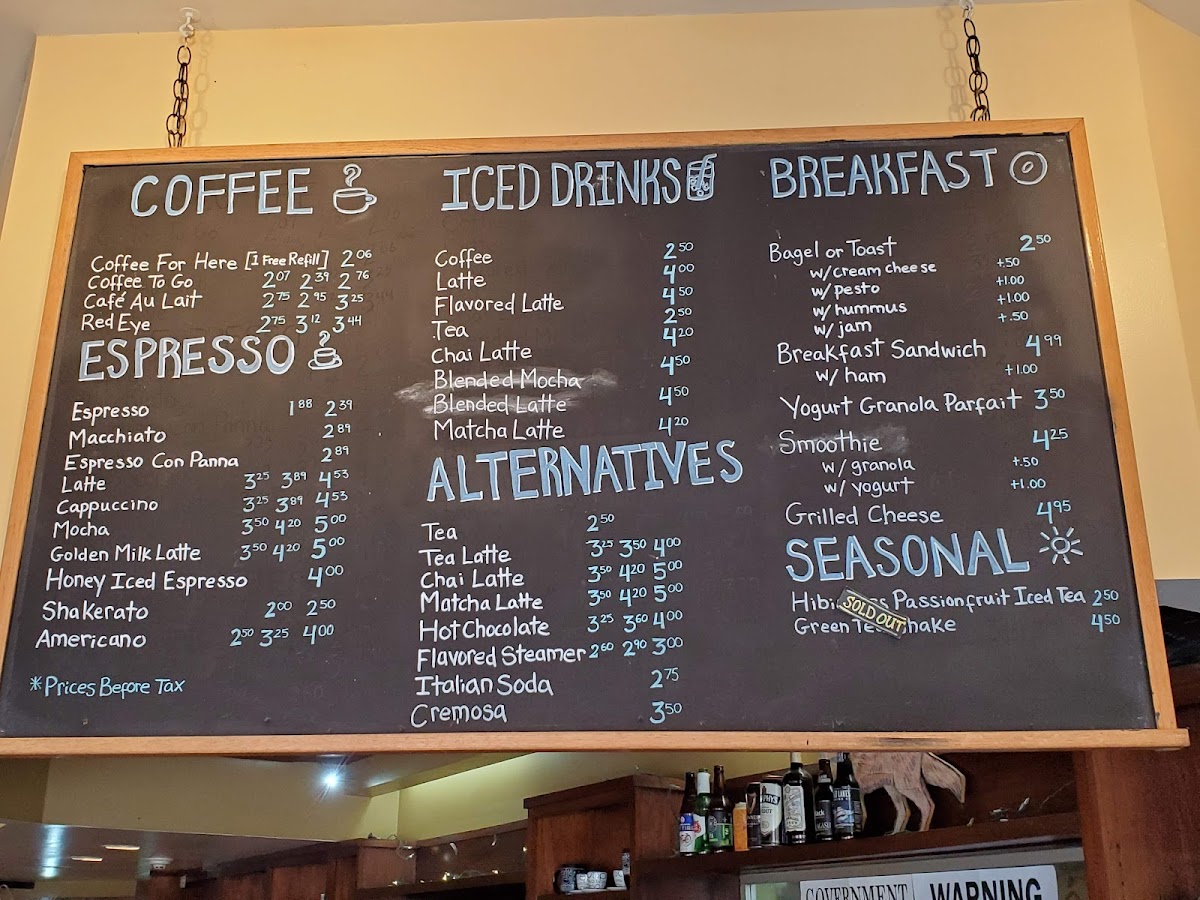 COFFEE
Coffee For Here [1 Free Refill] 2.06
Coffee To Go 2.07 2.39 2.76
Café Au Lait 2.75 2.95 3.25
Red Eye 2.75 3.12 3.44
ESPRESSO
Espresso 1.88 2.39
Macchiato 2.89
Espresso Con Panna 2.89
Latte 3.25 3.89 4.53
Cappuccino 3.25 3.89 4.53
Mocha 3.50 4.20 5.00
Golden Milk Latte 3.50 4.20 5.00
Honey Iced Espresso 4.00
Shakerato 2.00 2.50
Americano 2.50 3.25 4.00
*Prices Before Tax
ICED DRINKS
Coffee 2.50
Latte 4.00
Flavored Latte 4.50
Tea 2.50
Chai Latte 4.20
Blended Mocha 4.50
Blended Latte 4.50
Matcha Latte 4.20
ALTERNATIVES
Tea 2.50
Tea Latte 3.25 3.50 4.00
Chai Latte 3.50 4.20 5.00
Matcha Latte 3.50 4.20 5.00
Hot Chocolate 3.25 3.60 4.00
Flavored Steamer 2.60 2.90 3.00
Italian Soda 2.75
Cremosa 3.50
BREAKFAST
Bagel or Toast 2.50
w/cream cheese +.50
w/pesto +1.00
w/hummus +1.00
w/jam +.50
Breakfast Sandwich 4.99
w/ ham +1.00
Yogurt Granola Parfait 3.50
Smoothie 4.25
w/ granola +.50
w/ yogurt +1.00
Grilled Cheese 4.95
SEASONAL
Passionfruit Iced Tea 2.50
Green 4.50
SOLD OUT
GOVERNMENT WARNING